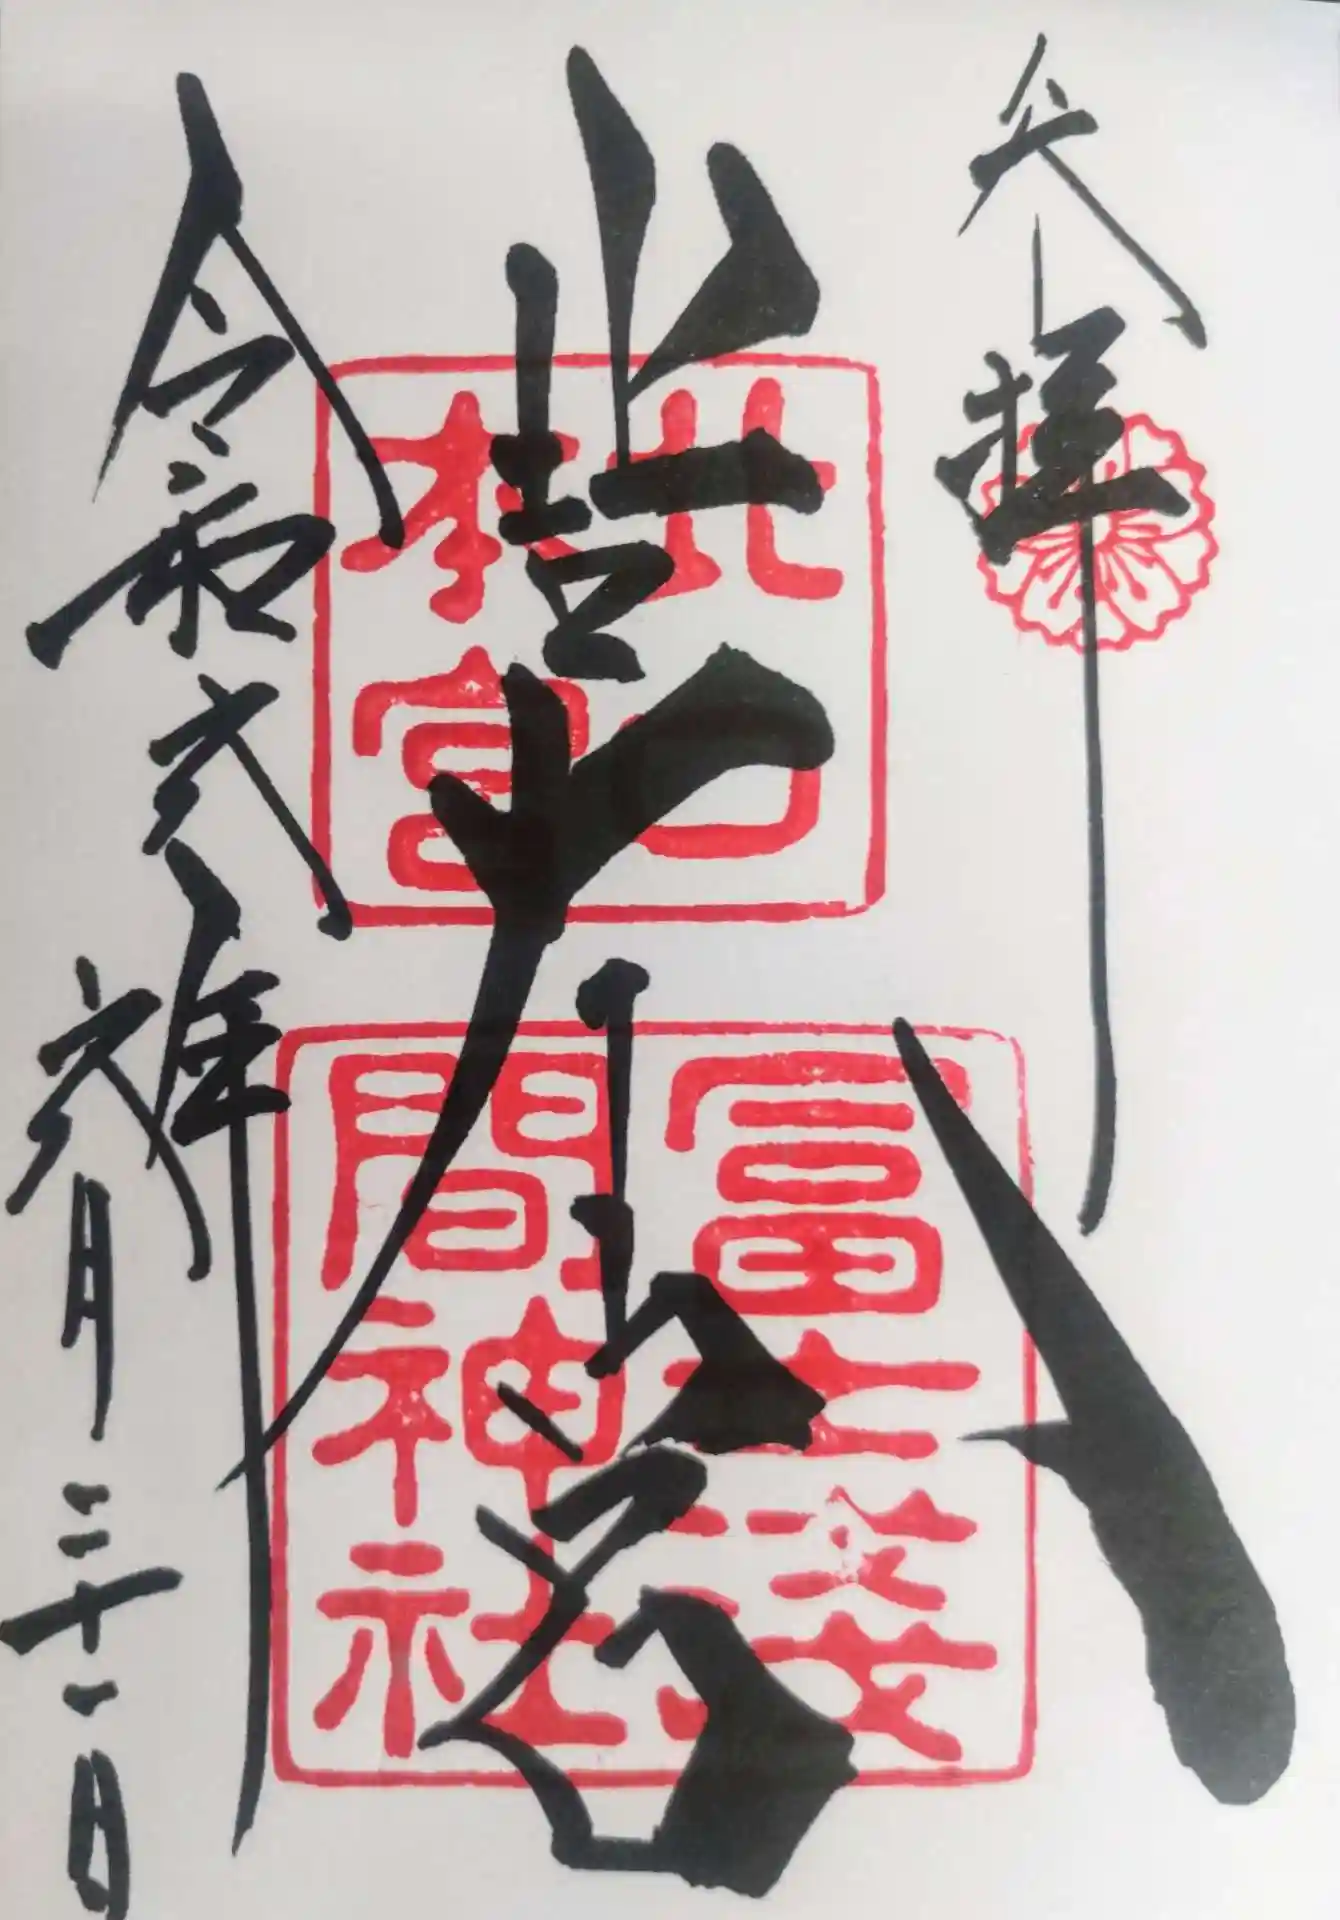 奉拝
北口本宮
令和弐年
六月二十一日
北口
本宮
冨士淺
間神社